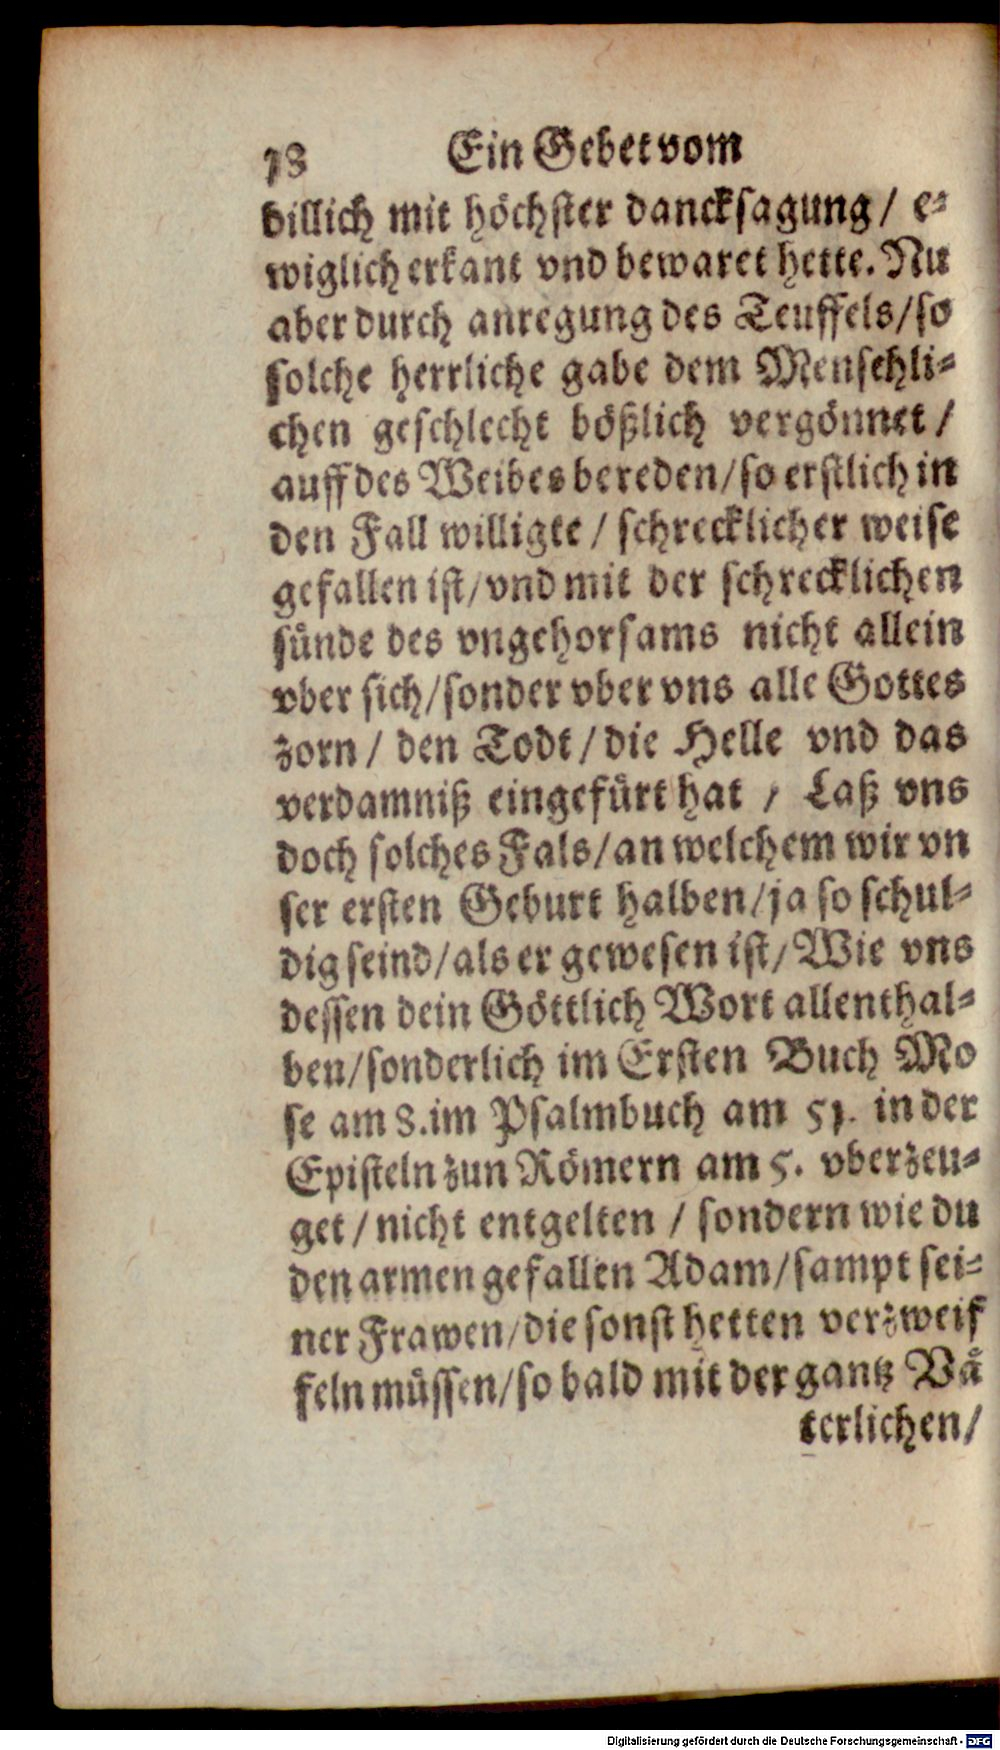 78 Ein Gebet vom
billich mit höchster dancksagung / e-
wiglich erkant vnd bewaret hette. Nu
aber durch anregung des Teuffels / so
solche herrliche gabe dem Menschli-
chen geschlecht bößlich vergönnet /
auff des Weibes bereden / so erstlich in
den Fall willigte / schrecklicher weise
gefallen ist / vnd mit der schrecklichen
sünde des vngehorsams nicht allein
vber sich / sonder vber vns alle Gottes
zorn / den Todt / die Helle vnd das
verdamniß eingefürt hat / Laß vns
doch solches Fals / an welchem wir vn
ser ersten Geburt halben / ja so schul-
dig seind / als er gewesen ist / Wie vns
dessen dein Göttlich Wort allenthal-
ben / sonderlich im Ersten Buch Mo
se am 8. im Psalmbuch am 51. in der
Episteln zun Römern am 5. vberzeu-
get / nicht entgelten / sondern wie du
den armen gefallen Adam / sampt sei-
ner Frawen / die sonst hetten verzweif
feln müssen / so bald mit der gantz Vä
terlichen /
Digitalisierung gefördert durch die Deutsche Forschungsgemeinschaft - DFG